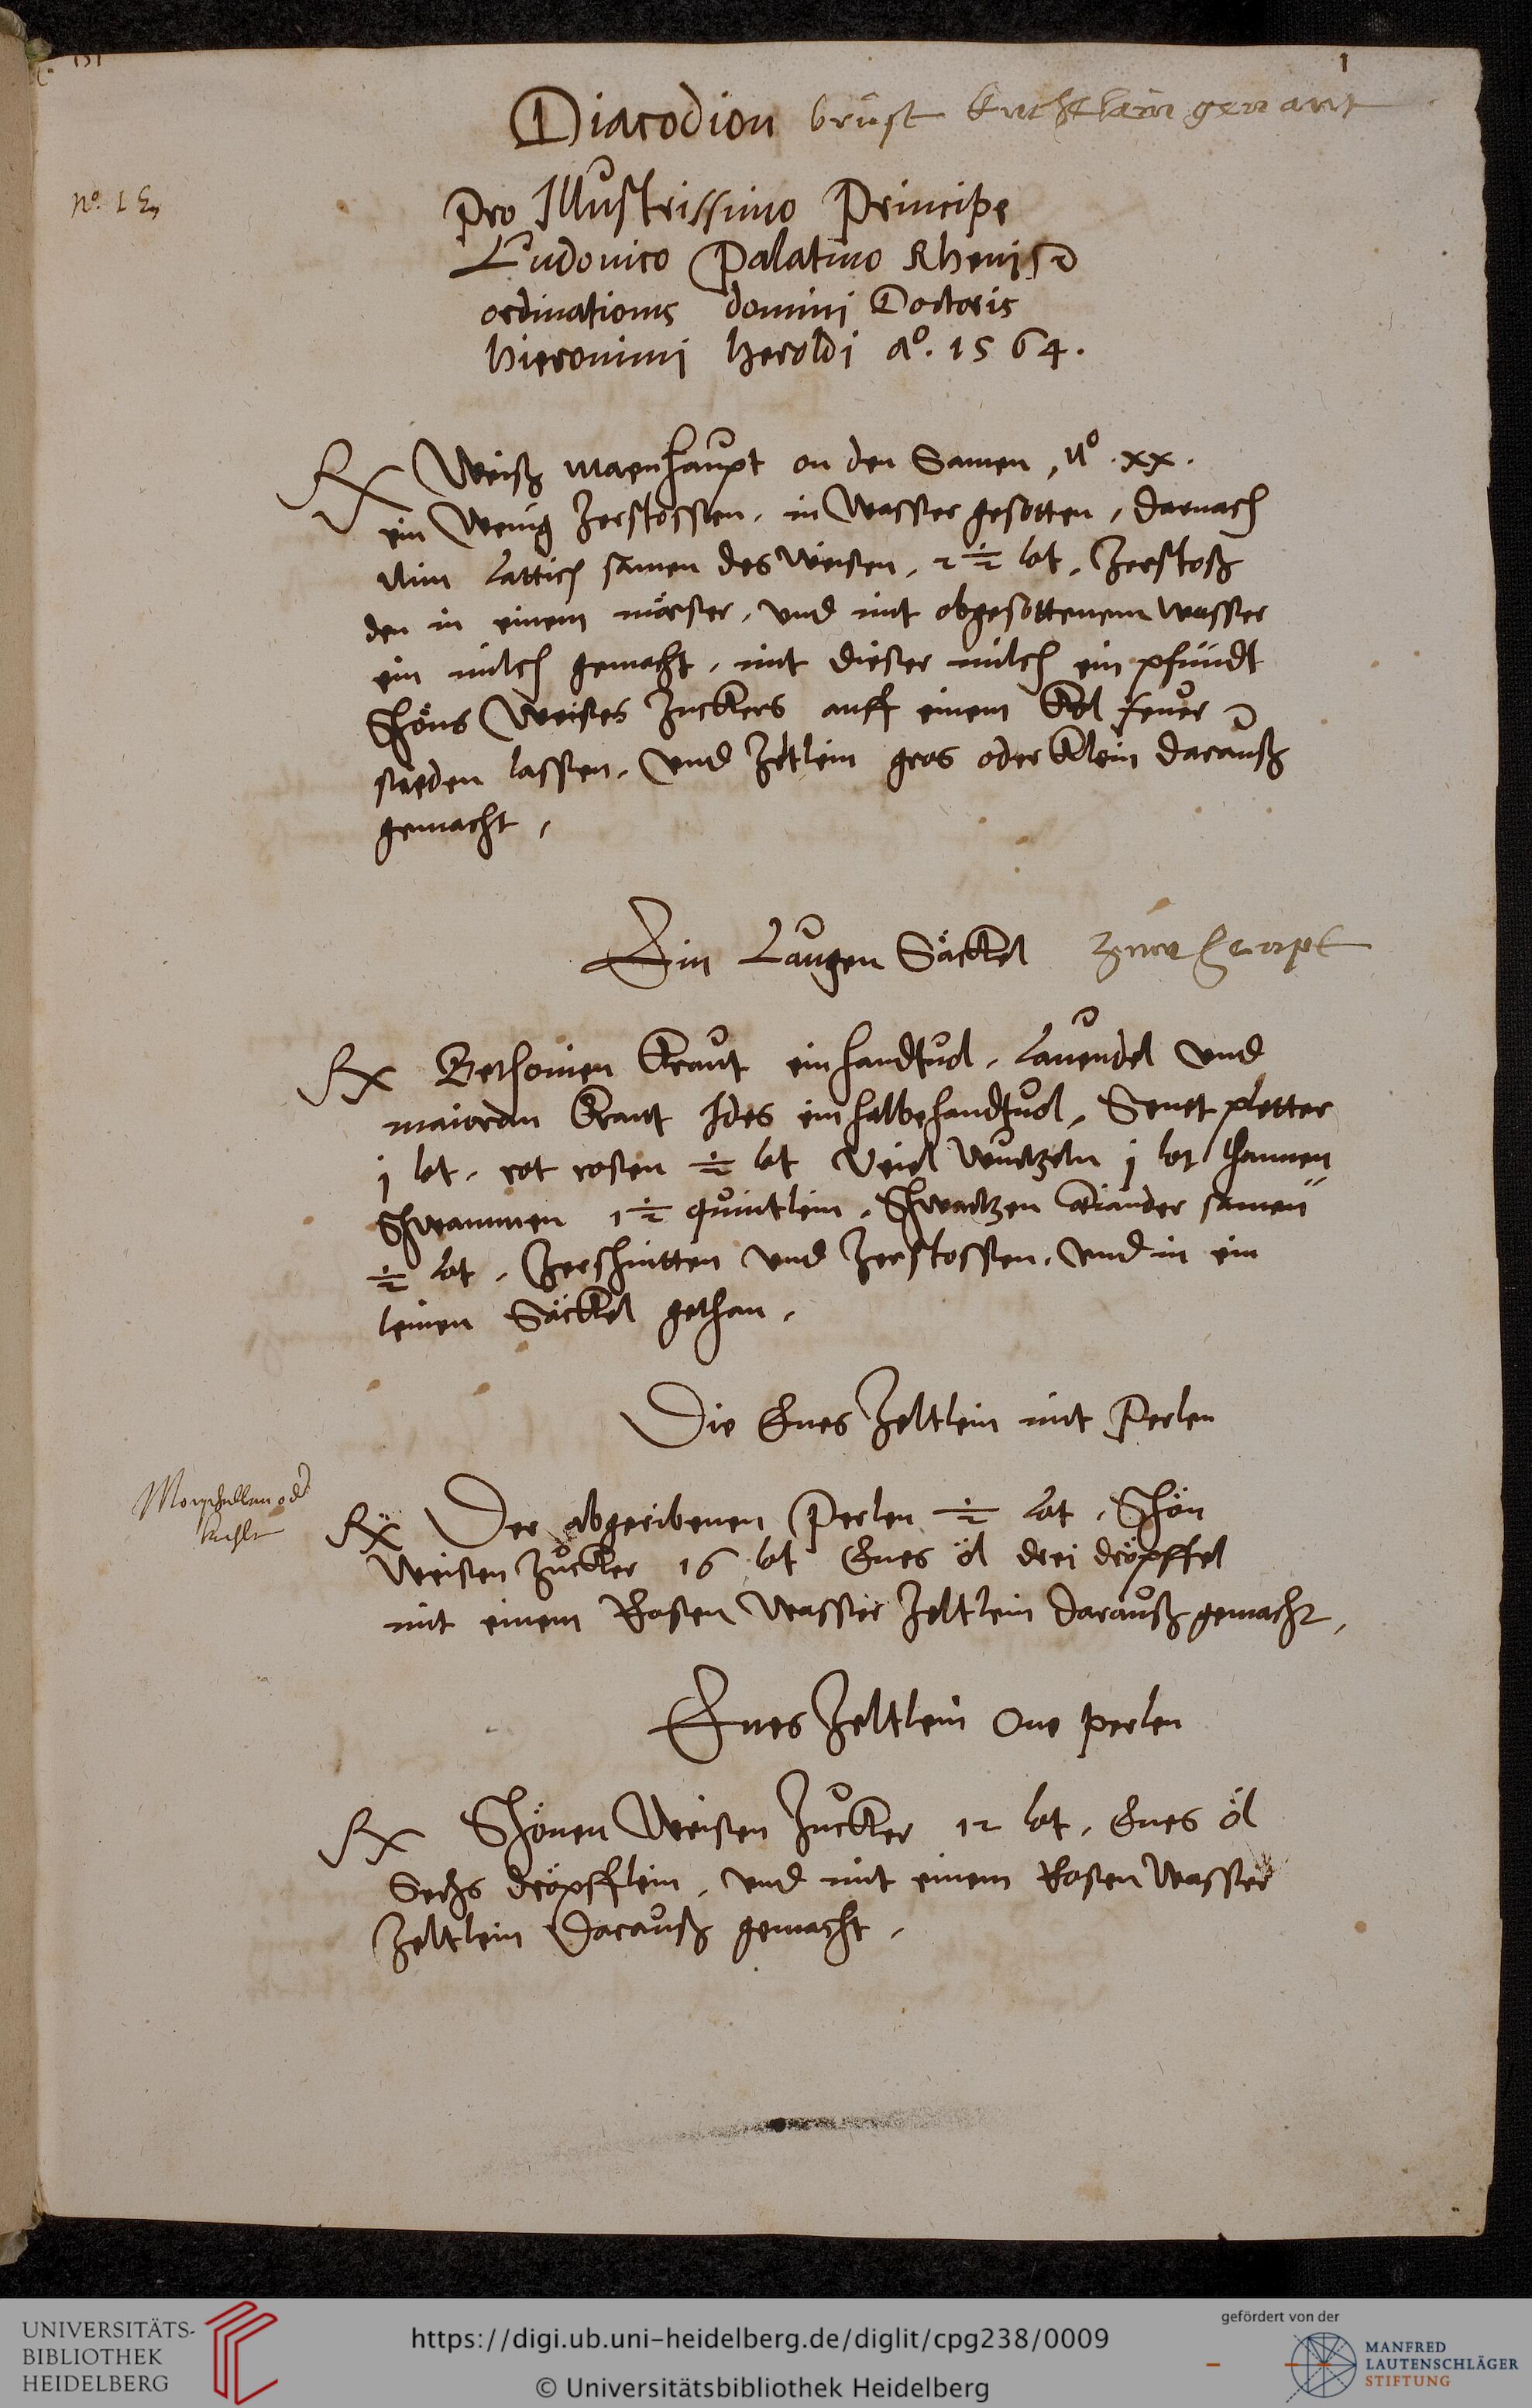 C. 151
1
Diacodion brust kuchlain genant
No. 1
Pro Illustrissimo Principe
Ludovico Palatino Rheni
ordinationis domini Doctoris
Hieronimi Heroldi Ao. 1564.
Rx Weiß maenhaupt on den Samen, No. xx.
ein wenig zerstossen, in wasser gesotten, darnach
Nim Lattich samen des weisen, 2 ½ lot, zerstoß
den in einem mörser, und mit obgesottenem wasser
ein milch gemacht, mit dieser milch ein pfundt
schöns weises zuckers auff einem kol feuer
sieden lassen, und zeltlein gros oder klein darauß
gemacht,
Ein Laugen Säckel zum haupt
Rx Bethonien kraut ein handtvol, Lavendel und
maioran kraut ides ein halbe handtvol, Senet pletter
j lot, rot rosen ½ lot veiel wurtzeln j lot thannen
schwammen 1 ½ quintlein, schwartzen coriander samen
½ lot, zerschnitten und zerstossen, und in ein
leinen Säckel gethan,
Die Enes Zeltlein mit Perlen
Morschellen od
kuchle
Rx Der abgeribenen Perlen ½ lot, schön
weisen zucker 16 lot Enes öl drei dröpffel
mit einem Rosen wasser zeltlein darauß gemacht,
Enes Zeltlein one perlen
Rx Schönen weisen zucker 12 lot, Enes öl
sechs dröpfflein, und mit einem Rosen wasser
zeltlein darauß gemacht,
UNIVERSITÄTS-
BIBLIOTHEK
HEIDELBERG
https://digi.ub.uni-heidelberg.de/diglit/cpg238/0009
© Universitätsbibliothek Heidelberg
gefördert von der
MANFRED
LAUTENSCHLÄGER
STIFTUNG